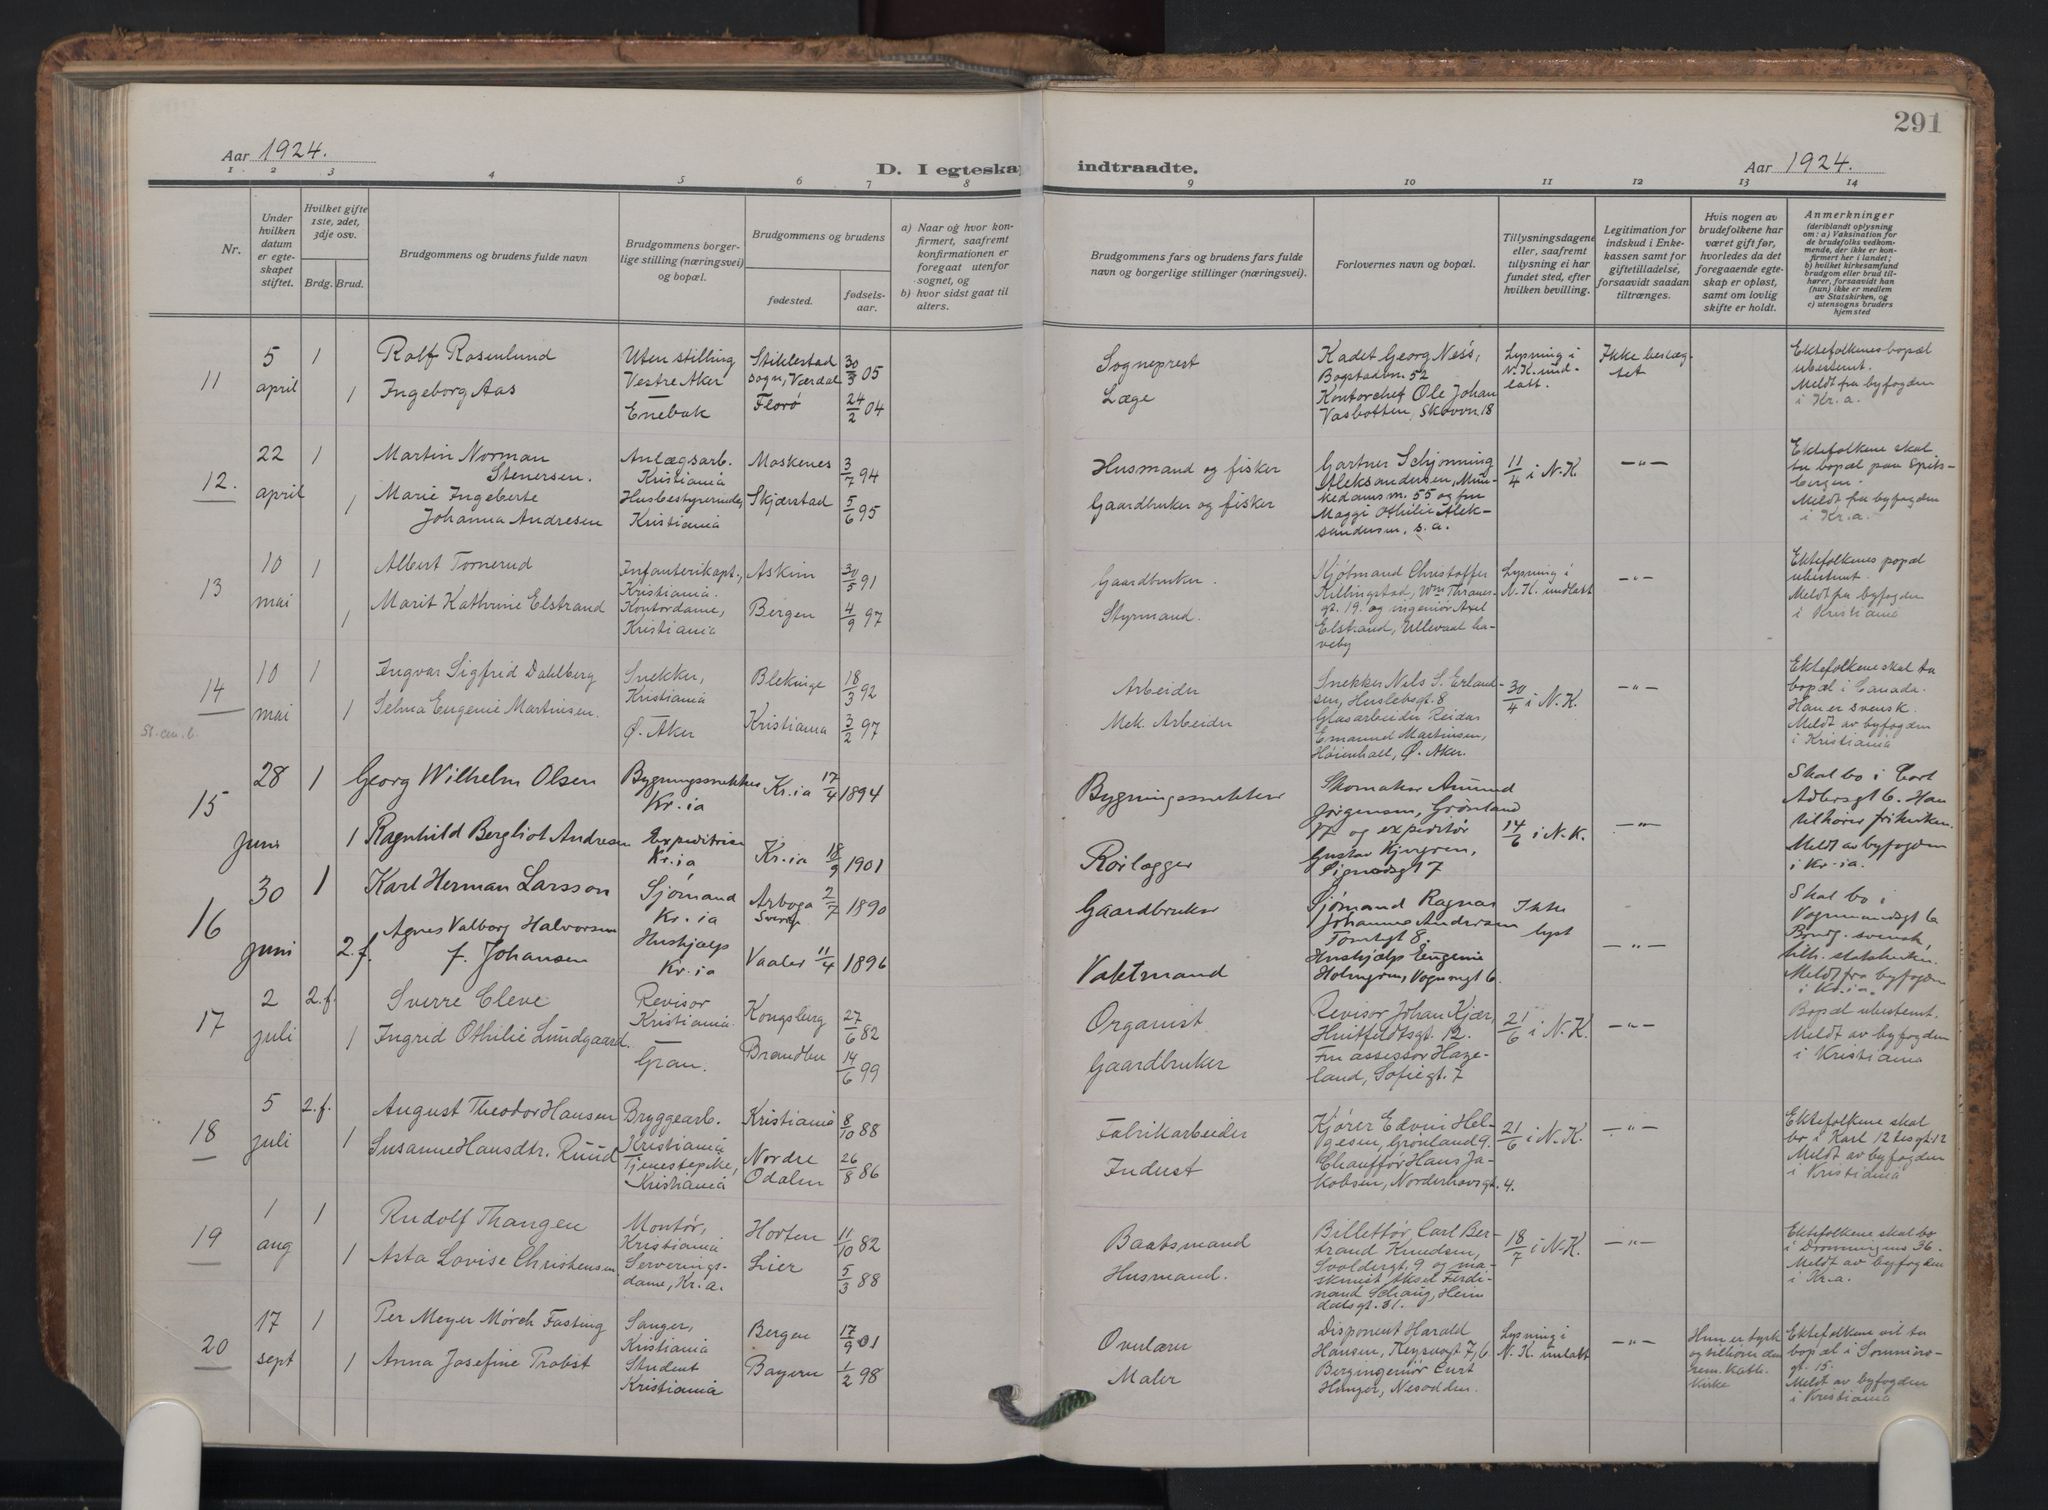 291
Aar 1924.
D. I egteska
indtraadte.
Aar 1924.
1 2 3 4 5 6 7 8 9 10 11 12 13 14
Nr.
Under hvilken datum er egteskapet stiftet.
Hvilket gifte 1ste, 2det, 3dje osv.
Brdg. Brud.
Brudgommens og brudens fulde navn
Brudgommens borgerlige stilling (næringsvei) og bopæl.
Brudgommens og brudens
fødested.
fødselsaar.
a) Naar og hvor konfirmert, saafremt konfirmationen er foregaat utenfor sognet, og
b) hvor sidst gaat til alters.
Brudgommens fars og brudens fars fulde navn og borgerlige stillinger (næringsvei).
Forlovernes navn og bopæl.
Tillysningsdagene eller, saafremt tillysning ei har fundet sted, efter hvilken bevilling.
Legitimation for indskud i Enkekassen samt for giftetilladelse, forsaavidt saadan tiltrænges.
Hvis nogen av brudefolkene har været gift før, hvorledes da det foregaaende egteskap er opløst, samt om lovlig skifte er holdt.
Anmerkninger
(deriblandt oplysning om: a) Vaksination for de brudefolks vedkommende, der ikke er konfirmert her i landet; b) hvilket kirkesamfund brudgom eller brud tilhører, forsaavidt han (hun) ikke er medlem av Statskirken, og c) utensogns bruders hjemsted
11
5 april
1
Rolf Rosenlund
Uten stilling
Vestre Aker
Stiklestad sogn, Værdal
30/3 05
Sogneprest
1
Ingeborg Aas
Enebak
Florø
24/2 04
Læge
Kadet Georg Ness,
Bogstadvn. 52
Kontorchef Ole Johan
Vasbotten, Skovvn. 18
Lysning i
N.K. undlatt.
Ikke beslægtet
Ektefolkenes bopæl
ubestemt.
Meldt fra byfogden
i Kr.a.
12.
22 april
1
Martin Norman
Stenersen.
Anlægsarb.
Kristiania
Moskenes
3/7 94
Husmand og fisker
1
Marie Ingeberte
Johanna Andresen
Husbestyrerinde,
Kristiania
Skjærstad
5/6 95
Gaardbruker og fisker
Gartner Schjønning
Aleksandersen, Munkedamsvn. 55 og fru
Maggi Othilie Aleksandersen, s.a.
11/4 i N.K
—"—
Ektefolkene skal
ta bopæl paa Spitsbergen.
Meldt fra byfogden
i Kr.a.
13
10 mai
1
Albert Tornerud
Infanterikapt.,
Kristiania.
Askim
30/5 91
Gaardbruker.
1
Marit Kathrine Elstrand
Kontordame,
Kristiania
Bergen
4/9 97
Styrmand.
Kjøbmand Christoffer
Killingstad, Wm Thranesgt. 19. og ingeniør Axel
Elstrand, Ullevaal haveby
Lysning i
N.K. undlatt
—"—
Ektefolkenes popæl
ubestemt.
Meldt fra byfogden
i Kristiania
14
10 mai
1
Ingvar Sigfrid Dahlberg
Snekker,
Kristiania
Blekinge
18/3 92
Arbeider
1
Selma Eugenie Martinsen.
Ø. Aker
Kristiania
3/2 97
Mek. Arbeider
Snekker Nels S. Erlandsen, Herslebsgt. 8
Glasarbeider Reidar
Emanuel Martinsen,
Høienhall, Ø. Aker.
30/4 i N.K.
—"—
Ektefolkene skal ta
bopæl i Canada.
Han er svensk.
Meldt av byfogden
i Kristiania
15
28 juni
1
Georg Wilhelm Olsen
Bygningssnekker
Kr.ia
Kr.ia
17/4 1894
Bygningssnekker
1
Ragnhild Bergliot Andresen
Expeditrise
Kr.ia
Kr.ia
18/9 1901
Rørlægger
Skomaker Amund
Jørgensen, Grønland
17 og expeditør
Gustav Kjergren,
Signesgt 7
14/6 i N.K.
—"—
Skal bo i Cort
Adlersgt 6. Han
tilhører frikirken.
Meldt av byfogden
i Kr.ia.
16
30 juni
1
Karl Herman Larsson
Sjømand
Kr.ia
Arboga
Sverige
2/7 1890
Gaardbruker
2. f.
Agnes Valborg Halvorsen
f. Johansen
Hushjælp
Kr.ia
Vaaler
11/4 1896
Vaktmand
Sjømand Ragnar
Johannes Andersen
Tomtegt 8.
Hushjælp Eugenie
Holmgren, Vognmgt 6.
Ikke
lyst
—"—
Skal bo i
Vognmandsgt 6a
Brudg. svensk,
tilh. statskirken.
Meldt fra byfogden
i Kr.ia.
17
2 juli
2. f.
Sverre Cleve
Revisor
Kristiania.
Kongsberg
27/6 82
Organist
1
Ingrid Othilie Lundgaard.
Gran.
Brandbu
14/6 99
Gaardbruker
Revisor Johan Kjær,
Huitfeldtsgt. 12.
Fru assessor Hazeland, Sofiegt. 7
21/6 i N.K.
—"—
Bopæl ubestemt.
Meldt av byfogden
i Kristiania
18
5 juli
2. f.
August Theodor Hansen
Bryggearb.
Kristiania
Kristiania
8/10 88
Fabrikarbeider
1
Susanne Hansdtr. Ruud
Tjenestepike,
Kristiania
Nordre
Odalen
26/8 86
Inderst
Kjører Edvin Helgesen, Grønland 9.
Chauffør Hans Jakobsen, Norderhovsgt. 4.
21/6 i N.K.
—"—
Ektefolkene skal
bo i Karl 12 tesgt. 12
Meldt av byfogden
i Kristiania
19
1 aug
1
Rudolf Thangen
Montør,
Kristiania
Horten
11/10 82
Baatsmand
1
Asta Lovise Christensen
Serveringsdame, Kr.a.
Lier
5/3 88
Husmand.
Billettør Carl Bertrand Knudsen,
Svoldergt. 9 og maskinist Aksel Ferdinand Schaug, Heimdalsgt. 31.
18/7 i N.K.
—"—
Ektefolkene skal bo
i Dronningens 36.
Meldt av byfogden
i Kr.a.
20
17 sept
1
Per Meyer Mørch Fasting
Sanger,
Kristiania
Bergen
17/9 01
Overlærer
1
Anna Josefine Probst
Student
Kristiania
Bayern
1/2 98
Maler
Disponent Harald
Hansen, Keysersgt 7, 6
Bergingeniør Curt
Hunger, Nesodden.
Lysning i
N.K. undlatt
—"—
Hun er tysk
og tilhører den
rom. kath.
kirke
Ektefolkene vil ta
bopæl i Sommerogt. 15.
Meldt av byfogden
i Kristiania